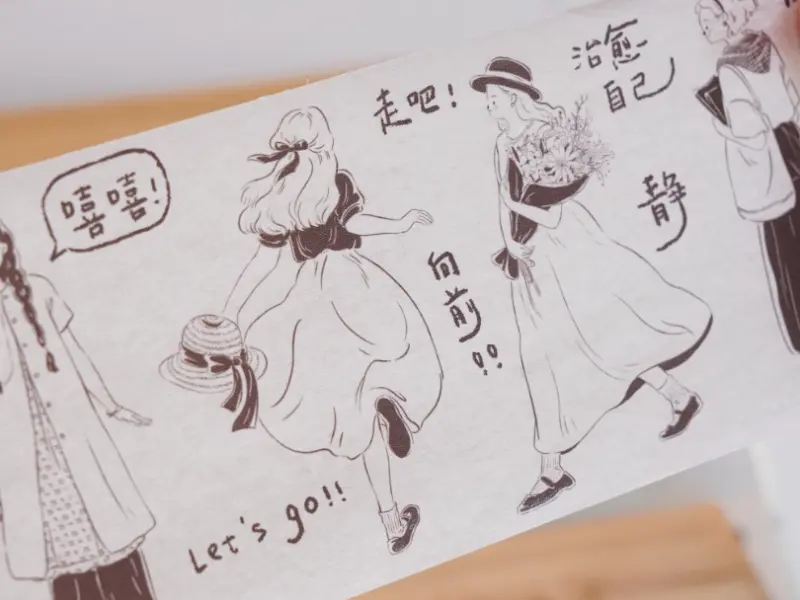 嘻嘻!
走吧!
治愈
自己
向前!!
静
Let's go!!